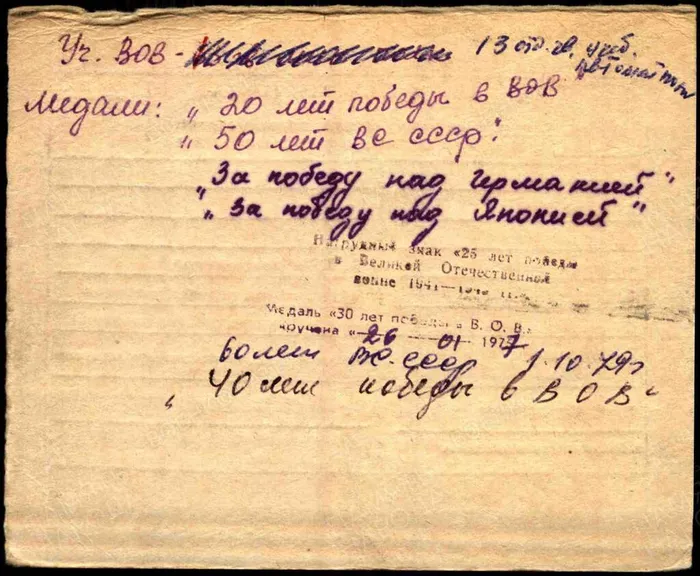 Уч. ВОВ - 13 отд. гв. учеб.
автомат
Медали: „20 лет победы в ВОВ"
„50 лет ВС СССР".
„За победу над Германией"
„За победу над Японией"
Нагрудный знак «25 лет победы
в Великой Отечественной
войне 1941—1945 гг.»
Медаль «30 лет победы в В. О. В.»
вручена «26 — 01 — 1977
60 лет ВС СССР 1.10.79г
„40 лет победы в ВОВ"